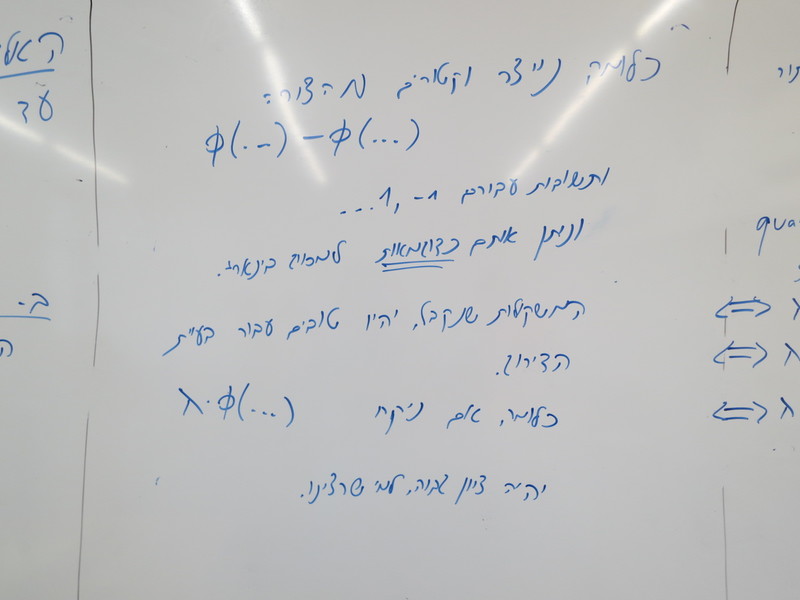 כלומר, נייצר וקטורים מהצורה
φ(...) − φ(...)
ותשובות עבורם 1, -1...
וניתן אותם כדוגמאות למסווג בינארי.
המשקלות שנקבל, יהיו טובים עבור בעיית
הדירוג.
כלומר, אם ניקח λ·φ(...)
יהיה ציון גבוה, למי שרצינו.
עד
ב-
⇔ λ
⇔ λ
⇔ λ